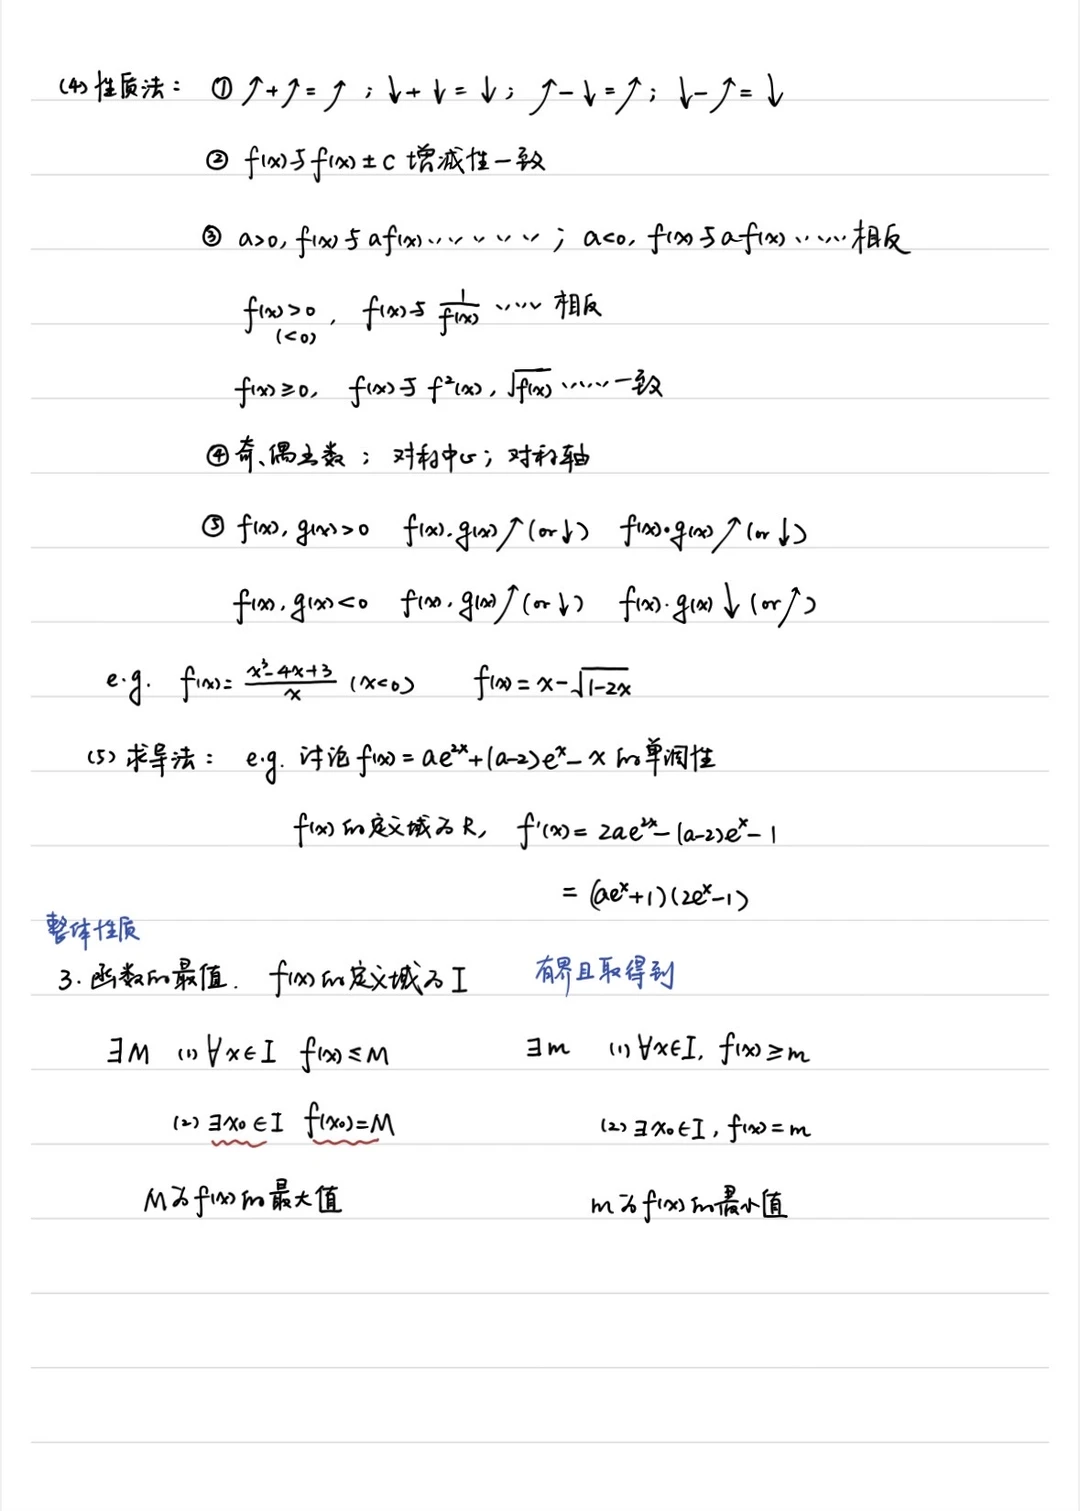 (4) 性质法： ① ↗+↗=↗ ; ↓+↓=↓ ; ↗-↓=↗ ; ↓-↗=↓
② f(x)与f(x)±C 增减性一致
③ a>0, f(x)与af(x)…… ; a<0, f(x)与af(x)……相反
f(x)>0 (<0) , f(x)与 1/f(x) ……相反
f(x)≥0, f(x)与 f²(x), √f(x) ……一致
④ 奇、偶函数 ; 对称中心 ; 对称轴
⑤ f(x), g(x)>0 f(x), g(x)↗(or↓) f(x)·g(x)↗(or↓)
f(x), g(x)<0 f(x), g(x)↗(or↓) f(x)·g(x)↓(or↗)
e.g. f(x)= (x³-4x+3)/x (x<0) f(x)=x-√(1-2x)
(5) 求导法： e.g. 讨论f(x)=ae²ˣ+(a-2)eˣ-x的单调性
f(x)的定义域为R, f'(x)=2ae²ˣ-(a-2)eˣ-1
=(aeˣ+1)(2eˣ-1)
整体性质
3. 函数的最值. f(x)的定义域为I 有界且取得到
∃M (1) ∀x∈I f(x)≤M ∃m (1) ∀x∈I, f(x)≥m
(2) ∃x₀∈I f(x₀)=M (2) ∃x₀∈I, f(x)=m
M为f(x)的最大值 m为f(x)的最小值